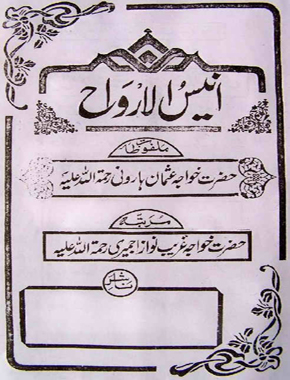 انیس الارواح
ملفوظات
حضرت خواجہ عثمان ہارونی رحمۃ اللہ علیہ
مرتبہ
حضرت خواجہ غریب نواز اجمیری رحمۃ اللہ علیہ
ناشر